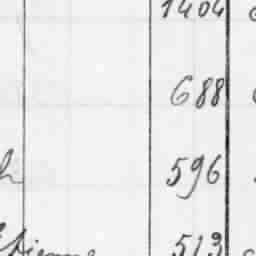 1404
688
596
513